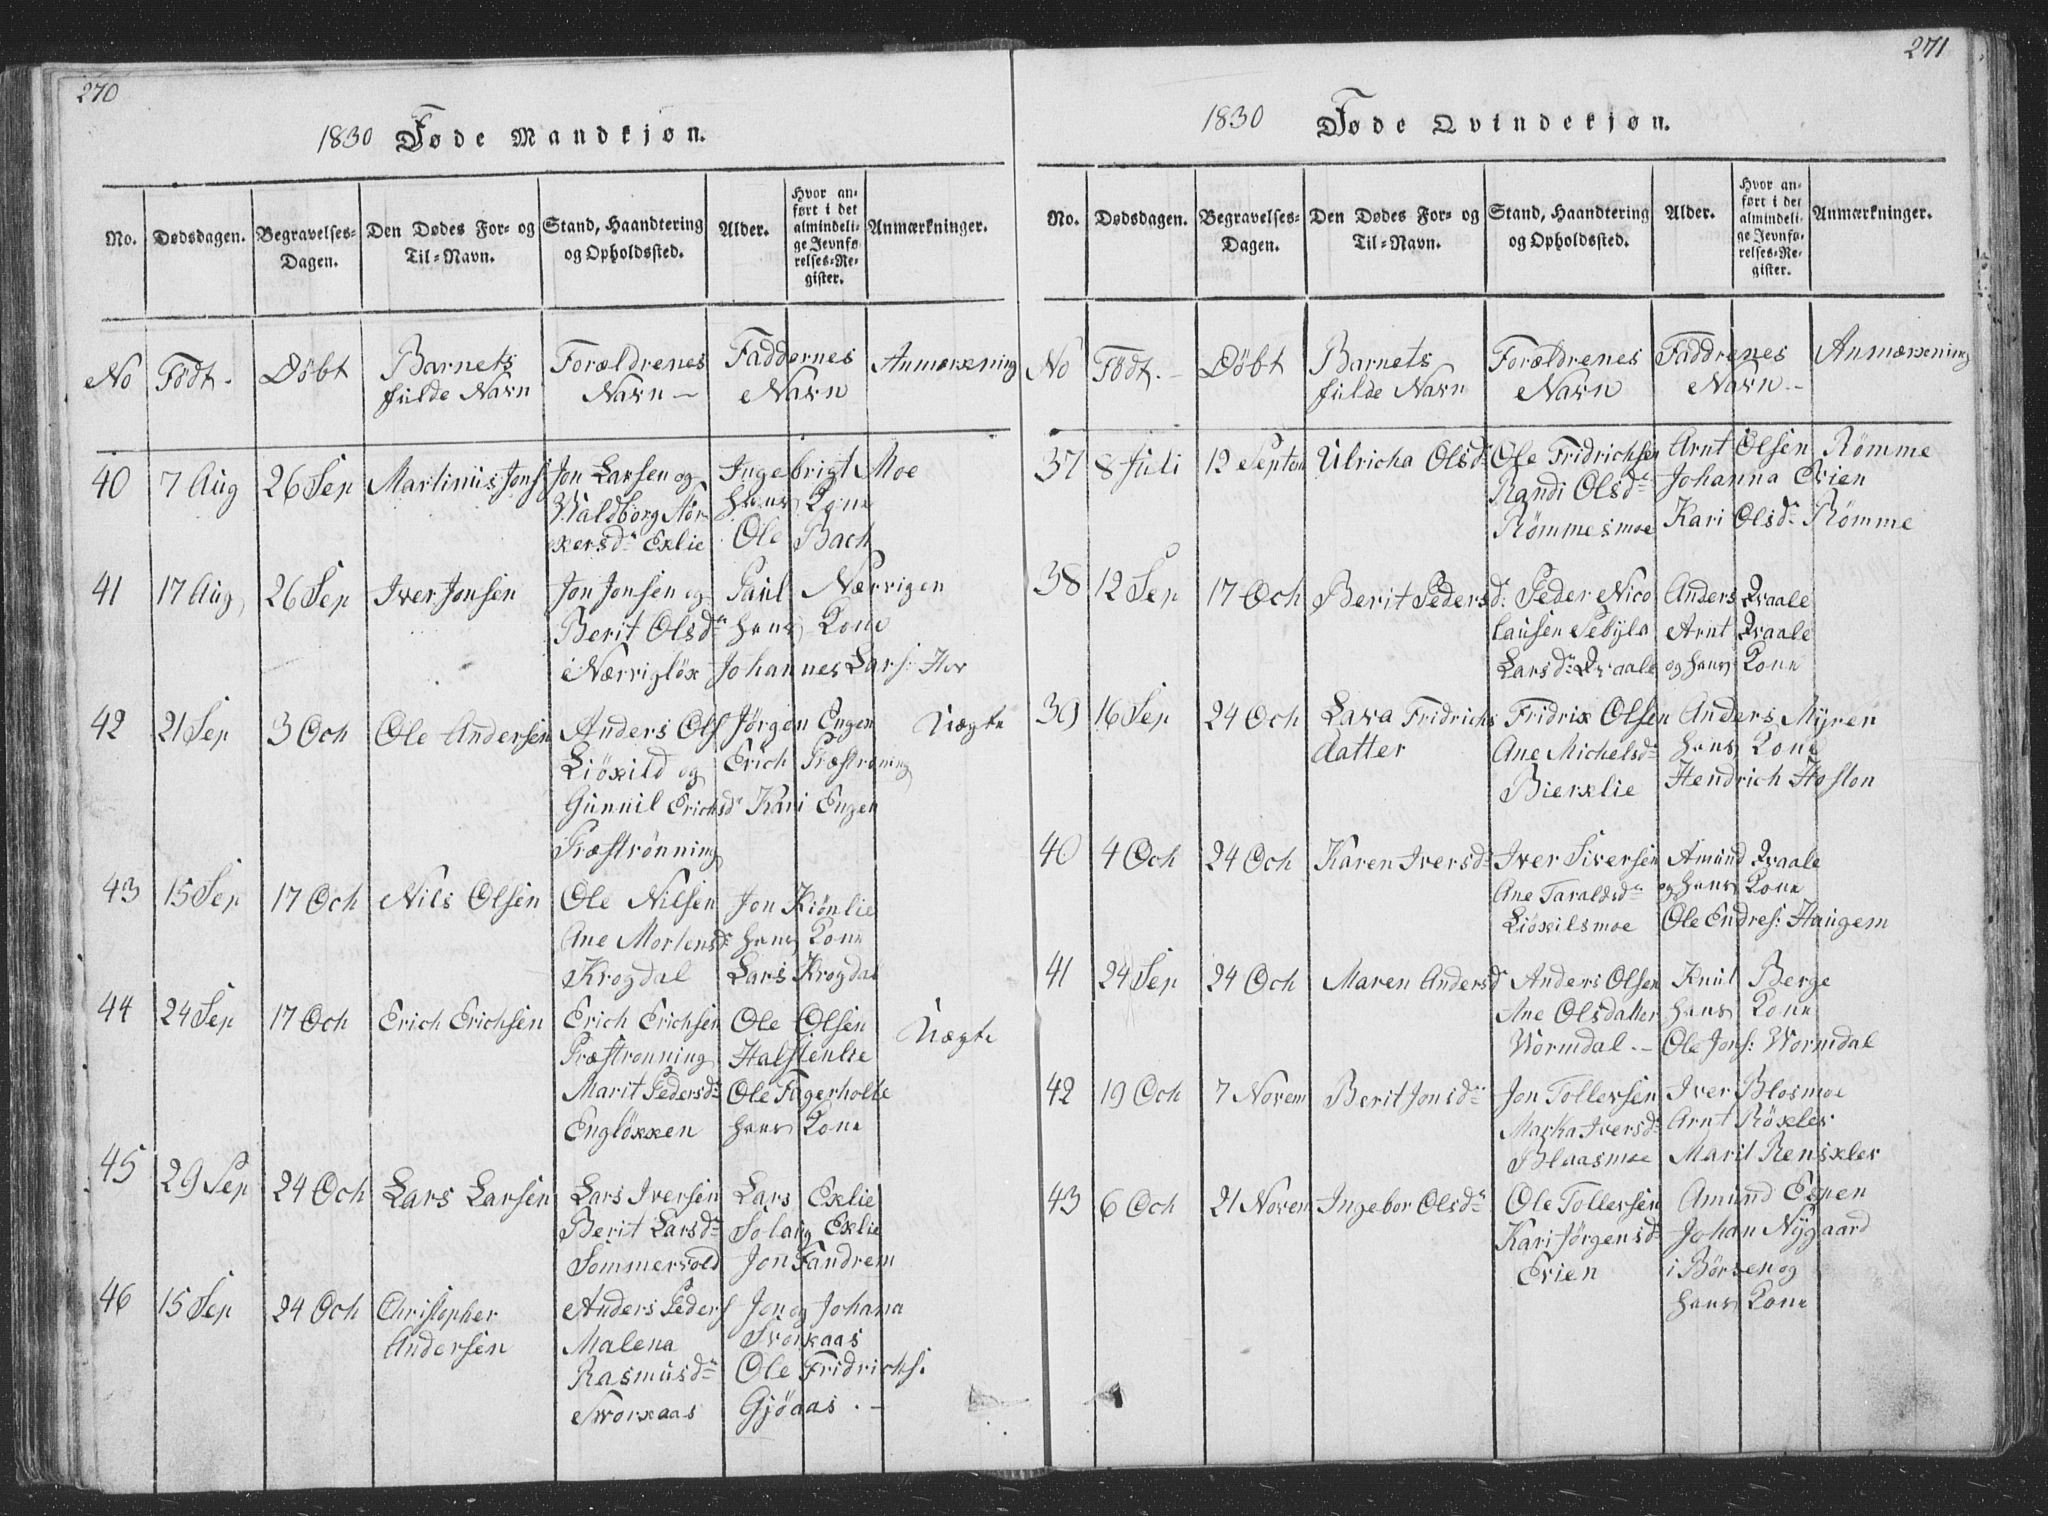 270
1830 Føde Mandkjøn.
No.
Dødsdagen.
Begravelses-
Dagen.
Den Dødes For- og
Til-Navn.
Stand, Haandtering
og Opholdssted.
Alder.
Hvor an-
ført i det
almindeli-
ge Jevnfø-
relses-Re-
gister.
Anmærkninger.
No
Födt.
Döbt
Barnets
fulde Navn
Forældrenes
Navn
Faddernes
Navn
Anmærkning
40
7 Aug
26 Sep
Martinus Jons
Jon Larsen og
Waldborg Nor-
kersdr Eklie
Ingebrigt Moe
hans Kone
Ole Bach
41
17 Aug
26 Sep
Iver Jonsen
Jon Jonsen og
Berit Olsdr
i Nærrigløk
Paul Nærrigen
hans Kone
Johannes Lars: Hov
42
21 Sep
3 Och
Ole Andersen
Anders Ols
Liökild og
Gunnil Erichsdr
Præströnning
Jörgen Engen
Erich Præströning
Kari Engen
Uægte
43
15 Sep
17 Och
Nils Olsen
Ole Nilsen
Ane Mortensd:
Krogdal
Jon Kiönlie
hans Kone
Lars Krogdal
44
24 Sep
17 Och
Erich Erichsen
Erich Erichsen
Præstronning
Marit Pedersdr
Englökken
Ole Olsen
Halstenlie
Ole Fagerholte
hans Kone
Uægte
45
29 Sep
24 Och
Lars Larsen
Lars Iversen
Berit Larsdr
Sommervold
Lars Eklie
Solaug Eklie
Jon Fandrem
46
15 Sep
24 Och
Christopher
Andersen
Anders Peders
Malena
Rasmusdr
Svorkaas
Jon og Johana
Svorkaas
Ole Fridrichs:
Gjöaas. -
271
1830 Føde Qvindekjøn.
No.
Dødsdagen.
Begravelses-
Dagen.
Den Dødes For- og
Til-Navn.
Stand, Haandtering
og Opholdssted.
Alder.
Hvor an-
ført i det
almindeli-
ge Jevnfø-
relses-Re-
gister.
Anmærkninger.
No
Födt. -
Döbt
Barnets
fulde Navn
Forældrenes
Navn
Faddrenes
Navn -
Anmærkning
37
8 Juli
12 Septem
Ulricha Olsd:
Ole Fridrichsen
Randi Olsdr
Römmesmoe
Arnt Olsen Römme
Johanna Evien
Kari Olsdr Römme
38
12 Sep
17 Och
Berit Pedersd:
Peder Nico
lausen Sebyla
Larsdr Qvaale
Anders Qvaale
Arnt Qvaale
og hans Kone
39
16 Sep
24 Och
Lava Fridrichs
datter
Fridrik Olsen
Ane Michelsdr
Bierklie
Anders Myren
hans Kone
Hendrich Hoston
40
4 Och
24 Och
Karen Iversdr
Iver Siversen
Ane Taraldsdr
Liökilsmoe
Amund Qvaale
og hans Kone
Ole Endres: Haugem
41
24 Sep
24 Och
Maren Andersd
Anders Olsen
Ane Olsdatter
Wormdal. -
Knut Berge
hans Kone
Ole Jons: Wormdal
42
19 Och
7 Novem
Berit Jonsdr
Jon Tollevsen
Marka Iversdr
Blaasmoe
Iver Blosmoe
Arnt Röklev
Marit Renskler
43
6 Och
21 Novem
Ingebor Olsdr
Ole Tollevsen
Kari Jörgensdr
Evien
Amund Espen
Johan Nygaard
i Börsen og
hans Kone